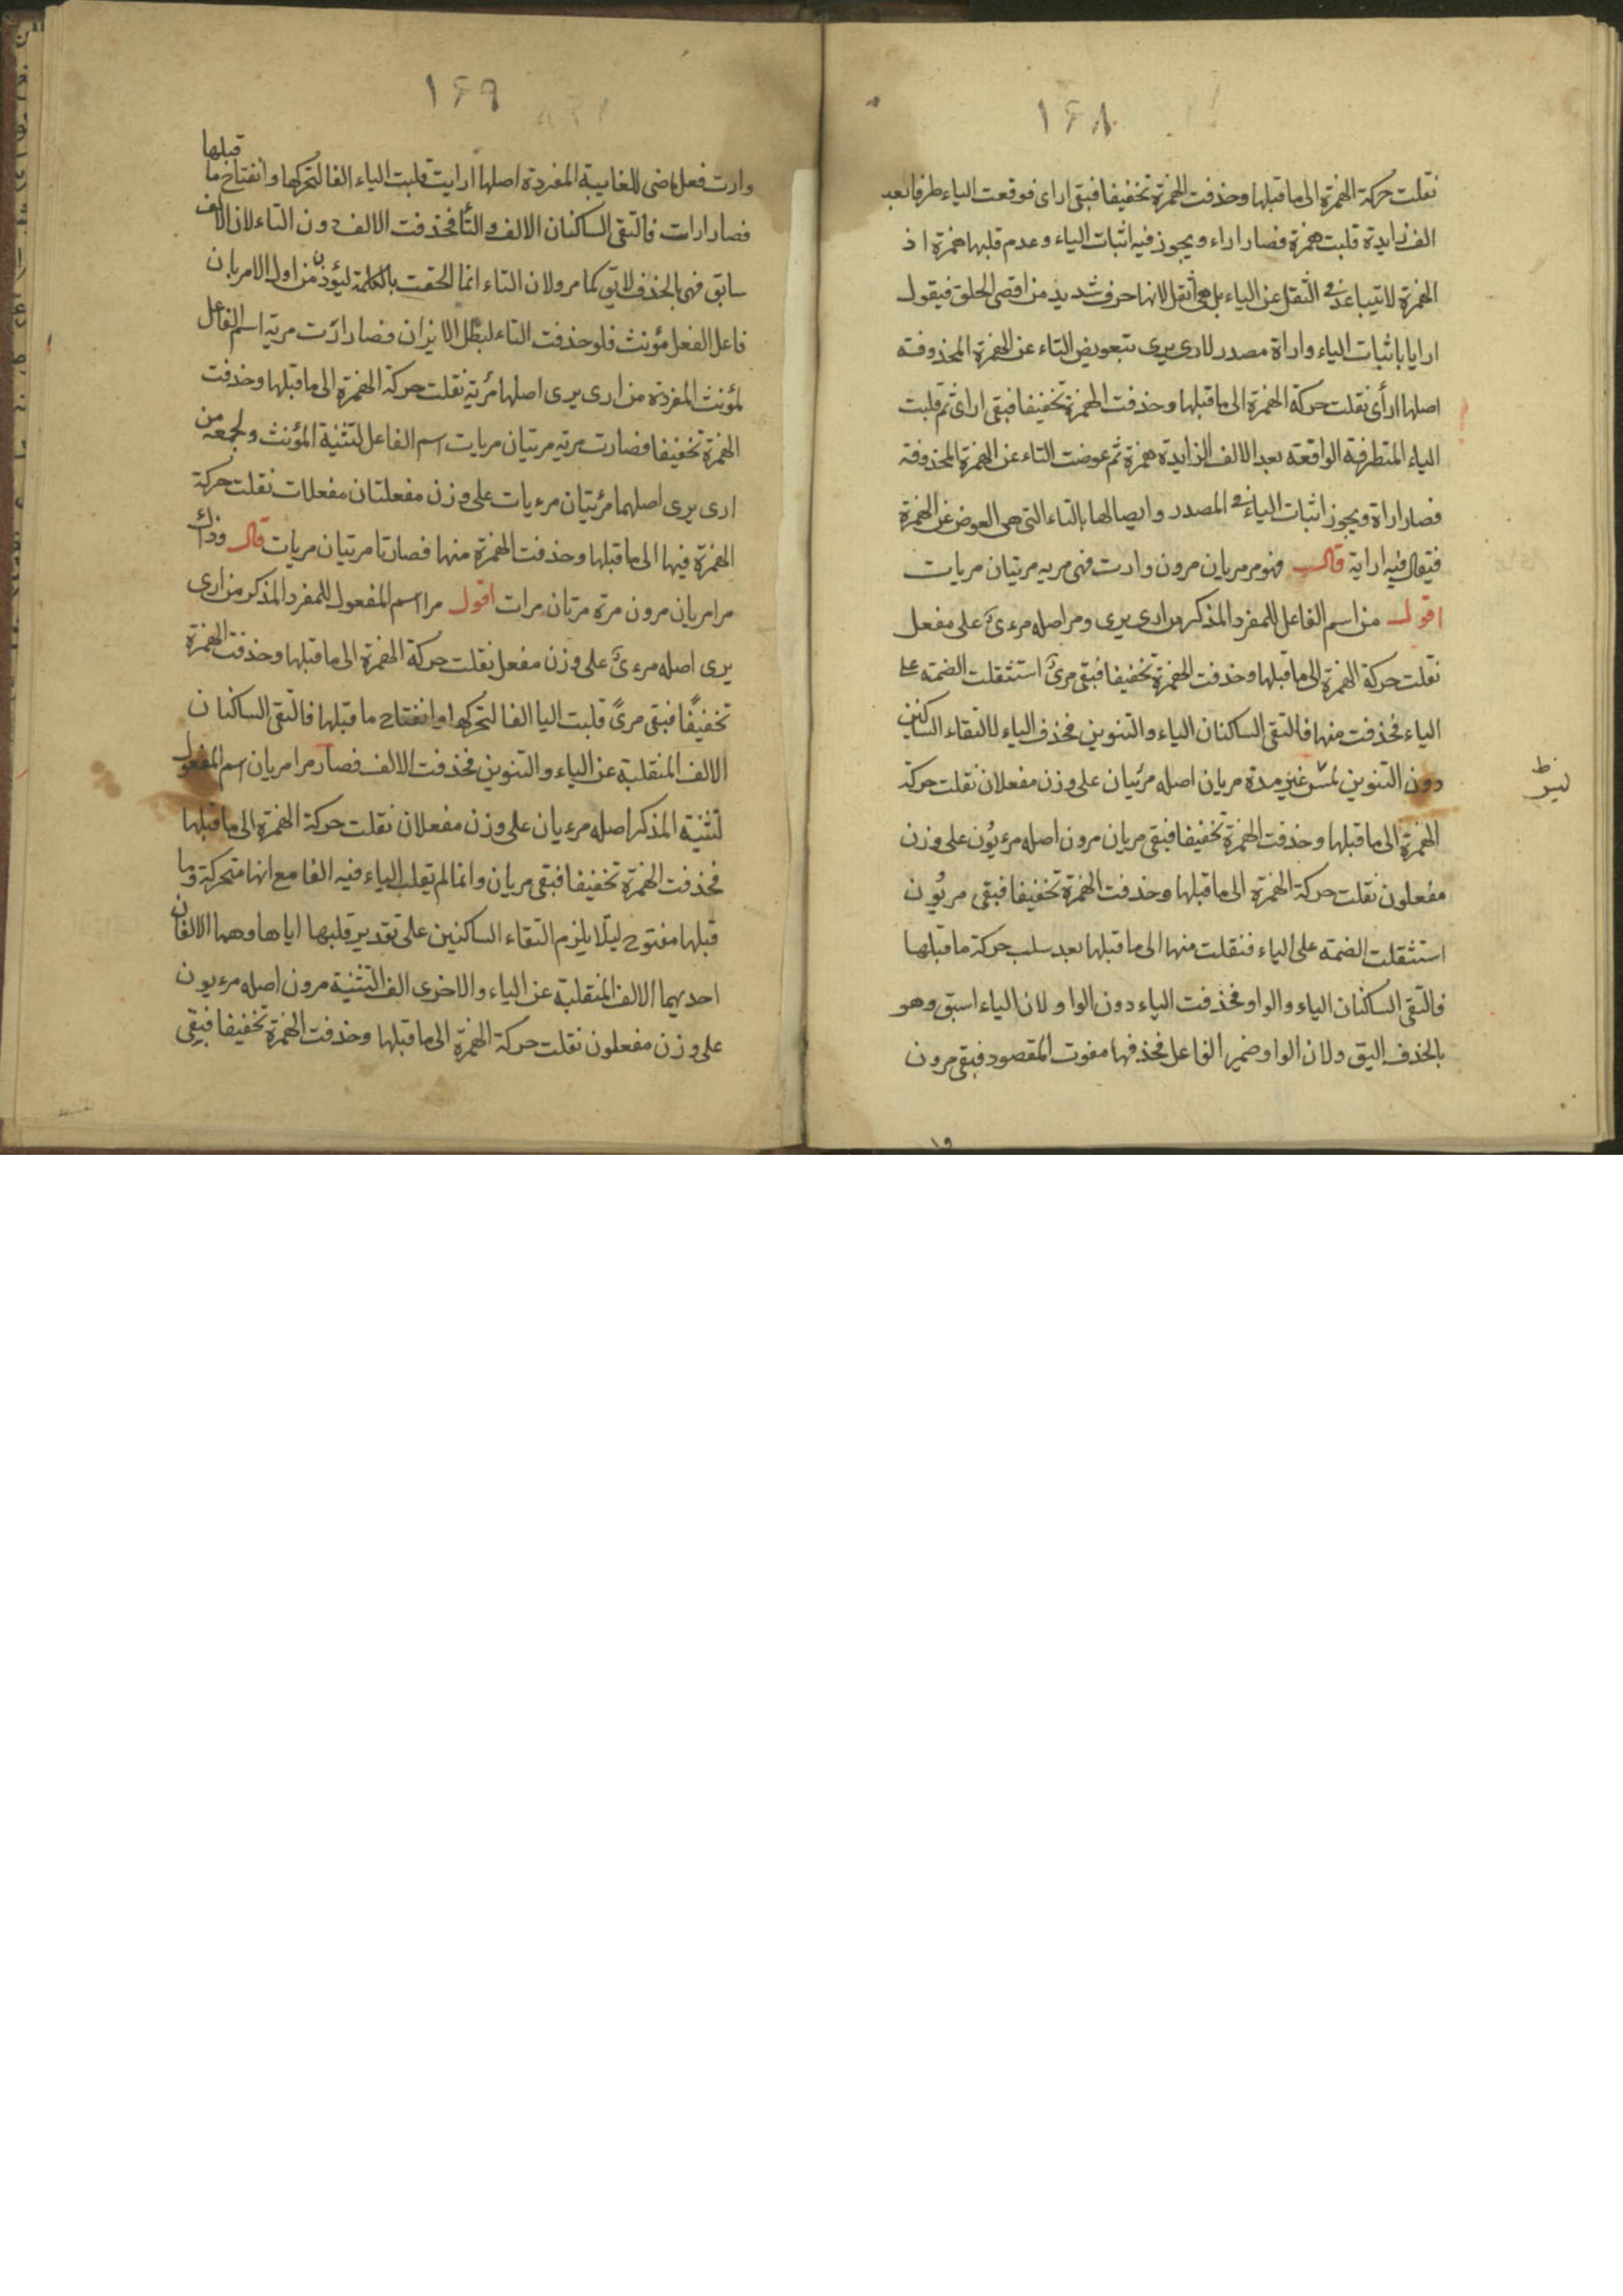 ١٤٨
نقلت حركة الهمزة الى ما قبلها وحذفت الهمزة تخفيفا فبقى اراى فوقعت الياء طرفا بعد
الف زايدة قلبت همزة فصار اراء ويجوز فيه اثبات الياء وعدم قلبها همزة اذ
الهمزة لا تتباعد فى الثقل عن الياء بل هى اثقل لانها حرف شديد من اقصى الحلق فيقول
ارايا باثبات الياء واراة مصدر لارى يرى بتعويض التاء عن الهمزة المحذوفة
اصلها ارأى نقلت حركة الهمزة الى ما قبلها وحذفت الهمزة تخفيفا فبقى اراى ثم قلبت
الياء المتطرفة الواقعة بعد الالف الزايدة همزة ثم عوضت التاء عن الهمزة المحذوفة
فصار اراة ويجوز اثبات الياء فى المصدر وايصالها بالتاء التى هى العوض عن الهمزة
فيقال فيه اراية قال فهو مر مريان مرون وارت فهى مرية مريتان مريات
اقول من اسم الفاعل للمفرد المذكر من ارى يرى ومر اصله مرءىٌ على مفعل
نقلت حركة الهمزة الى ما قبلها وحذفت الهمزة تخفيفا فبقى مرىٌ استثقلت الضمة على
الياء فحذفت منها فالتقى الساكنان الياء والتنوين فحذف الياء لالتقاء الساكنين
دون التنوين غير مدة مريان اصله مرئيان على وزن مفعلان نقلت حركة
الهمزة الى ما قبلها وحذفت الهمزة تخفيفا فبقى مريان مرون اصله مرءيُون على وزن
مفعلون نقلت حركة الهمزة الى ما قبلها وحذفت الهمزة تخفيفا فبقى مريُون
استثقلت الضمة على الياء فنقلت منها الى ما قبلها بعد سلب حركة ما قبلها
فالتقى الساكنان الياء والواو فحذفت الياء دون الواو لان الياء اسبق وهو
بالحذف اليق ولان الواو ضمير الفاعل فحذفها مفوت المقصود فبقى مرون
١٤٩
وارت فعل ماضى للغايبة المفردة اصلها ارايت قلبت الياء الفا لتحركها وانفتاح ما قبلها
فصار ارات فالتقى الساكنان الالف والتا فحذفت الالف دون التاء لان الالف
سابق فهى بالحذف لايق كما مر ولان التاء انما الحقت بالكلمة ليؤذن من اول الامر بان
فاعل الفعل مؤنث فلو حذفت التاء لبطل الايزان فصار ارَت مرية اسم الفاعل
لمؤنث المفردة من ارى يرى اصلها مرُية نقلت حركة الهمزة الى ما قبلها وحذفت
الهمزة تخفيفا فصارت مرية مريتان مريات اسم الفاعل لتثنية المؤنث ولجمعه من
ارى يرى اصلهما مرئيتان مرءيات على وزن مفعلتان مفعلات نقلت حركة
الهمزة فيها الى ما قبلها وحذفت الهمزة منها فصارتا مريتان مريات قال وذاك
مرا مريان مرون مرة مرتان مرات اقول مرا اسم المفعول للمفرد المذكر من ارى
يرى اصله مرءىٌ على وزن مفعل نقلت حركة الهمزة الى ما قبلها وحذفت الهمزة
تخفيفًا فبقى مرىً قلبت اليا الفا لتحركها وانفتاح ما قبلها فالتقى الساكنان
الالف المنقلبة عن الياء والتنوين فحذفت الالف فصار مرا مريان اسم المفعول
لتثنية المذكر اصله مرءيان على وزن مفعلان نقلت حركة الهمزة الى ما قبلها
فحذفت الهمزة تخفيفا فبقى مريان وانما لم يقلب الياء فيه الفا مع انها متحركة وما
قبلها مفتوح ليلا يلزم التقاء الساكنين على تقدير قلبها اياها وهما الالفان
احديهما الالف المنقلبة عن الياء والاخرى الف التثنية مرون اصله مرءيون
على وزن مفعلون نقلت حركة الهمزة الى ما قبلها وحذفت الهمزة تخفيفا فبقى